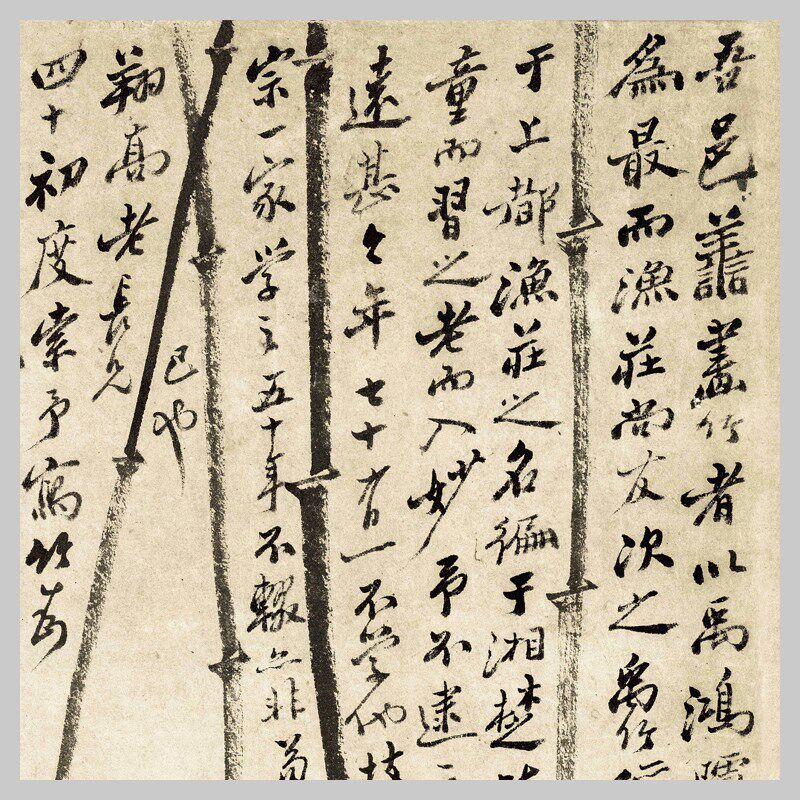 吾邑譱畫竹者以禹鴻臚
為最而漁莊尚友次之禹竹
于上都漁莊之名徧于湘楚
童而習之老而入妙予不逮
遠甚今年七十有一不學他技
宗一家學之五十年不輟亦非
已也
翔高老長兄
四十初度索予寫竹壽